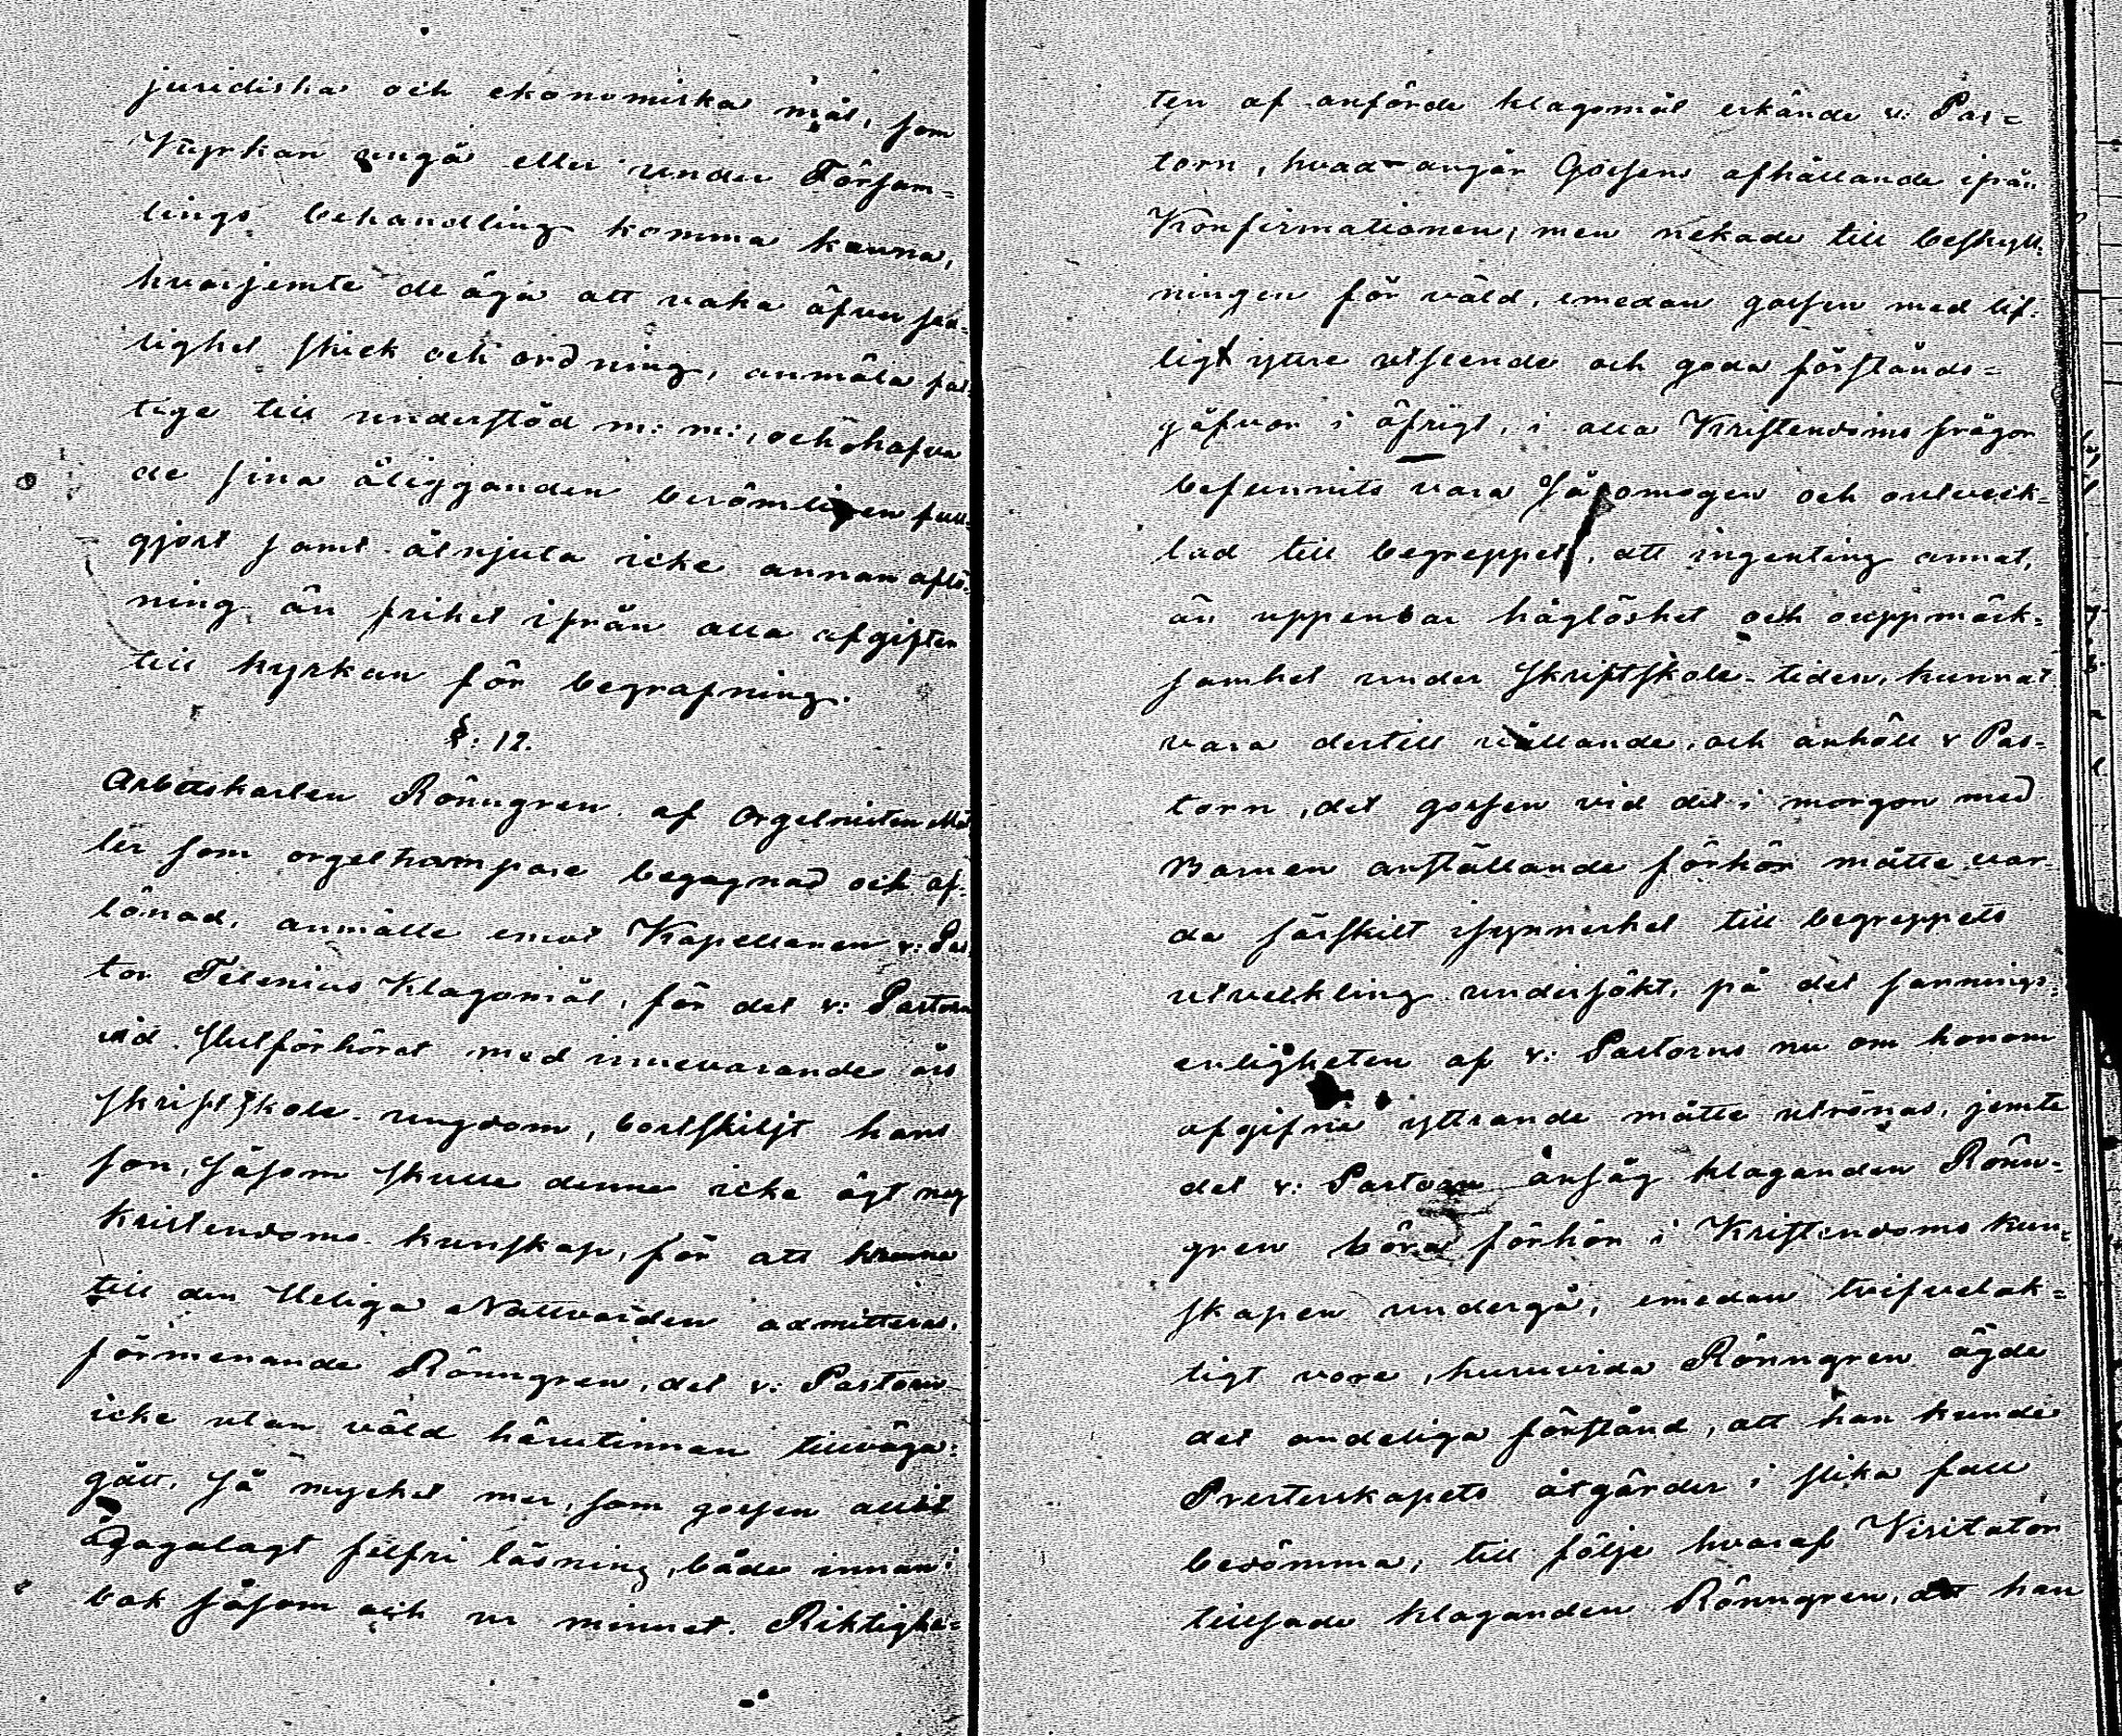 juridiska och ekonomiska mål, som
Kyrkan angå eller under Försam=
lings behandling komma kunna,
hvarjemte de äga att vaka öfver sed-
lighet skick och ordning, anmäla fat-
tige till understöd m: m:, och hafva
de sina åligganden berömligen full-
gjort samt åtnjuta icke annan aflö-
ning än frihet ifrån alla afgifter
till kyrkan för begrafning.
§: 12.
Arbetskarlen Rönngren af Orgelnisten
ler som orgeltrampare begagnad och af-
lönad, anmälte emot Kapellanen v: Pas
tor Telenius Klagomål, för det v: Pastorn
vid Slutförhöret med innevarande års
Skriftskole-ungdom, bortskiljt hans
son, såsom skulle denne icke ägt nog
Kristendoms-kunskap, för att kunna
till den Heliga Nattvarden admitteras,
förmenande Rönngren, det v: Pastorn
icke utan våld härutinnan tillväga-
gått, så mycket mer, som gossen alltid
ådagalagt felfri läsning, både innan i
bok såsom och ur minnet. Riktighe=
ten af anförde klagomål erkände v: Pas=
torn, hvad angår Gossens afhållande ifrån
Konfirmationen; men nekade till beskyll-
ningen för våld, emedan gossen med lif-
ligt yttre utseende och goda förstånds=
gåfvor i öfrigt, i alla Kristendoms frågor
befunnits vara så omogen och outveck=
lad till begreppet, att ingenting annat,
än uppenbar håglöshet och ouppmärk-
samhet under Skriftskole-tiden, kunnat
vara dertill vållande, och anhöll v Pas-
torn, det gossen vid det i morgon med
Barnen anställande förhör måtte var-
da särskilt isynnerhet till begreppets
utveckling undersökt, på det sannings-
enligheten af v: Pastorns nu om honom
afgifne yttrande måtte utrönas, jemte
det v: Pastorn ansåg klaganden Rönn-
gren böra förhör i Kristendoms kun-
skapen undergå, emedan tvifvelak=
tigt vore, huruvida Rönngren ägde
det andeliga förstånd, att han kunde
Presterskapets åtgärder i slika fall
bedömma; till följe hvaraf Visitator
tillsade klaganden Rönngren, att han